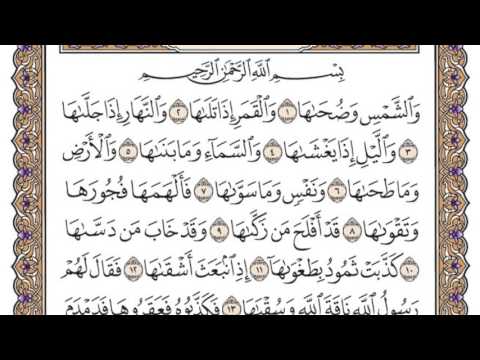 بِسْمِ اللَّهِ الرَّحْمَٰنِ الرَّحِيمِ
وَالشَّمْسِ وَضُحَىٰهَا ١ وَالْقَمَرِ إِذَا تَلَىٰهَا ٢ وَالنَّهَارِ إِذَا جَلَّىٰهَا
٣ وَالَّيْلِ إِذَا يَغْشَىٰهَا ٤ وَالسَّمَآءِ وَمَا بَنَىٰهَا ٥ وَالْأَرْضِ
وَمَا طَحَىٰهَا ٦ وَنَفْسٍ وَمَا سَوَّىٰهَا ٧ فَأَلْهَمَهَا فُجُورَهَا
وَتَقْوَىٰهَا ٨ قَدْ أَفْلَحَ مَن زَكَّىٰهَا ٩ وَقَدْ خَابَ مَن دَسَّىٰهَا
١٠ كَذَّبَتْ ثَمُودُ بِطَغْوَىٰهَآ ١١ إِذِ انۢبَعَثَ أَشْقَىٰهَا ١٢ فَقَالَ لَهُمْ
رَسُولُ اللَّهِ نَاقَةَ اللَّهِ وَسُقْيَىٰهَا ١٣ فَكَذَّبُوهُ فَعَقَرُوهَا فَدَمْدَمَ